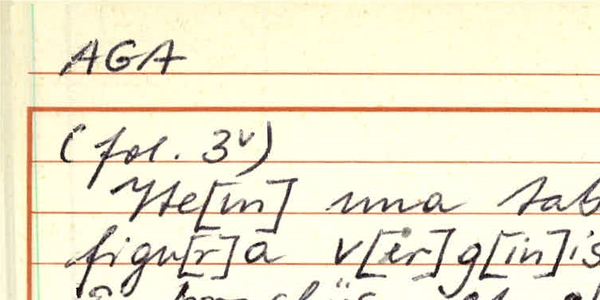 AGA
(fol. 3v)
Yte[m] una tab
figu[r]a v[ir]g[in]is